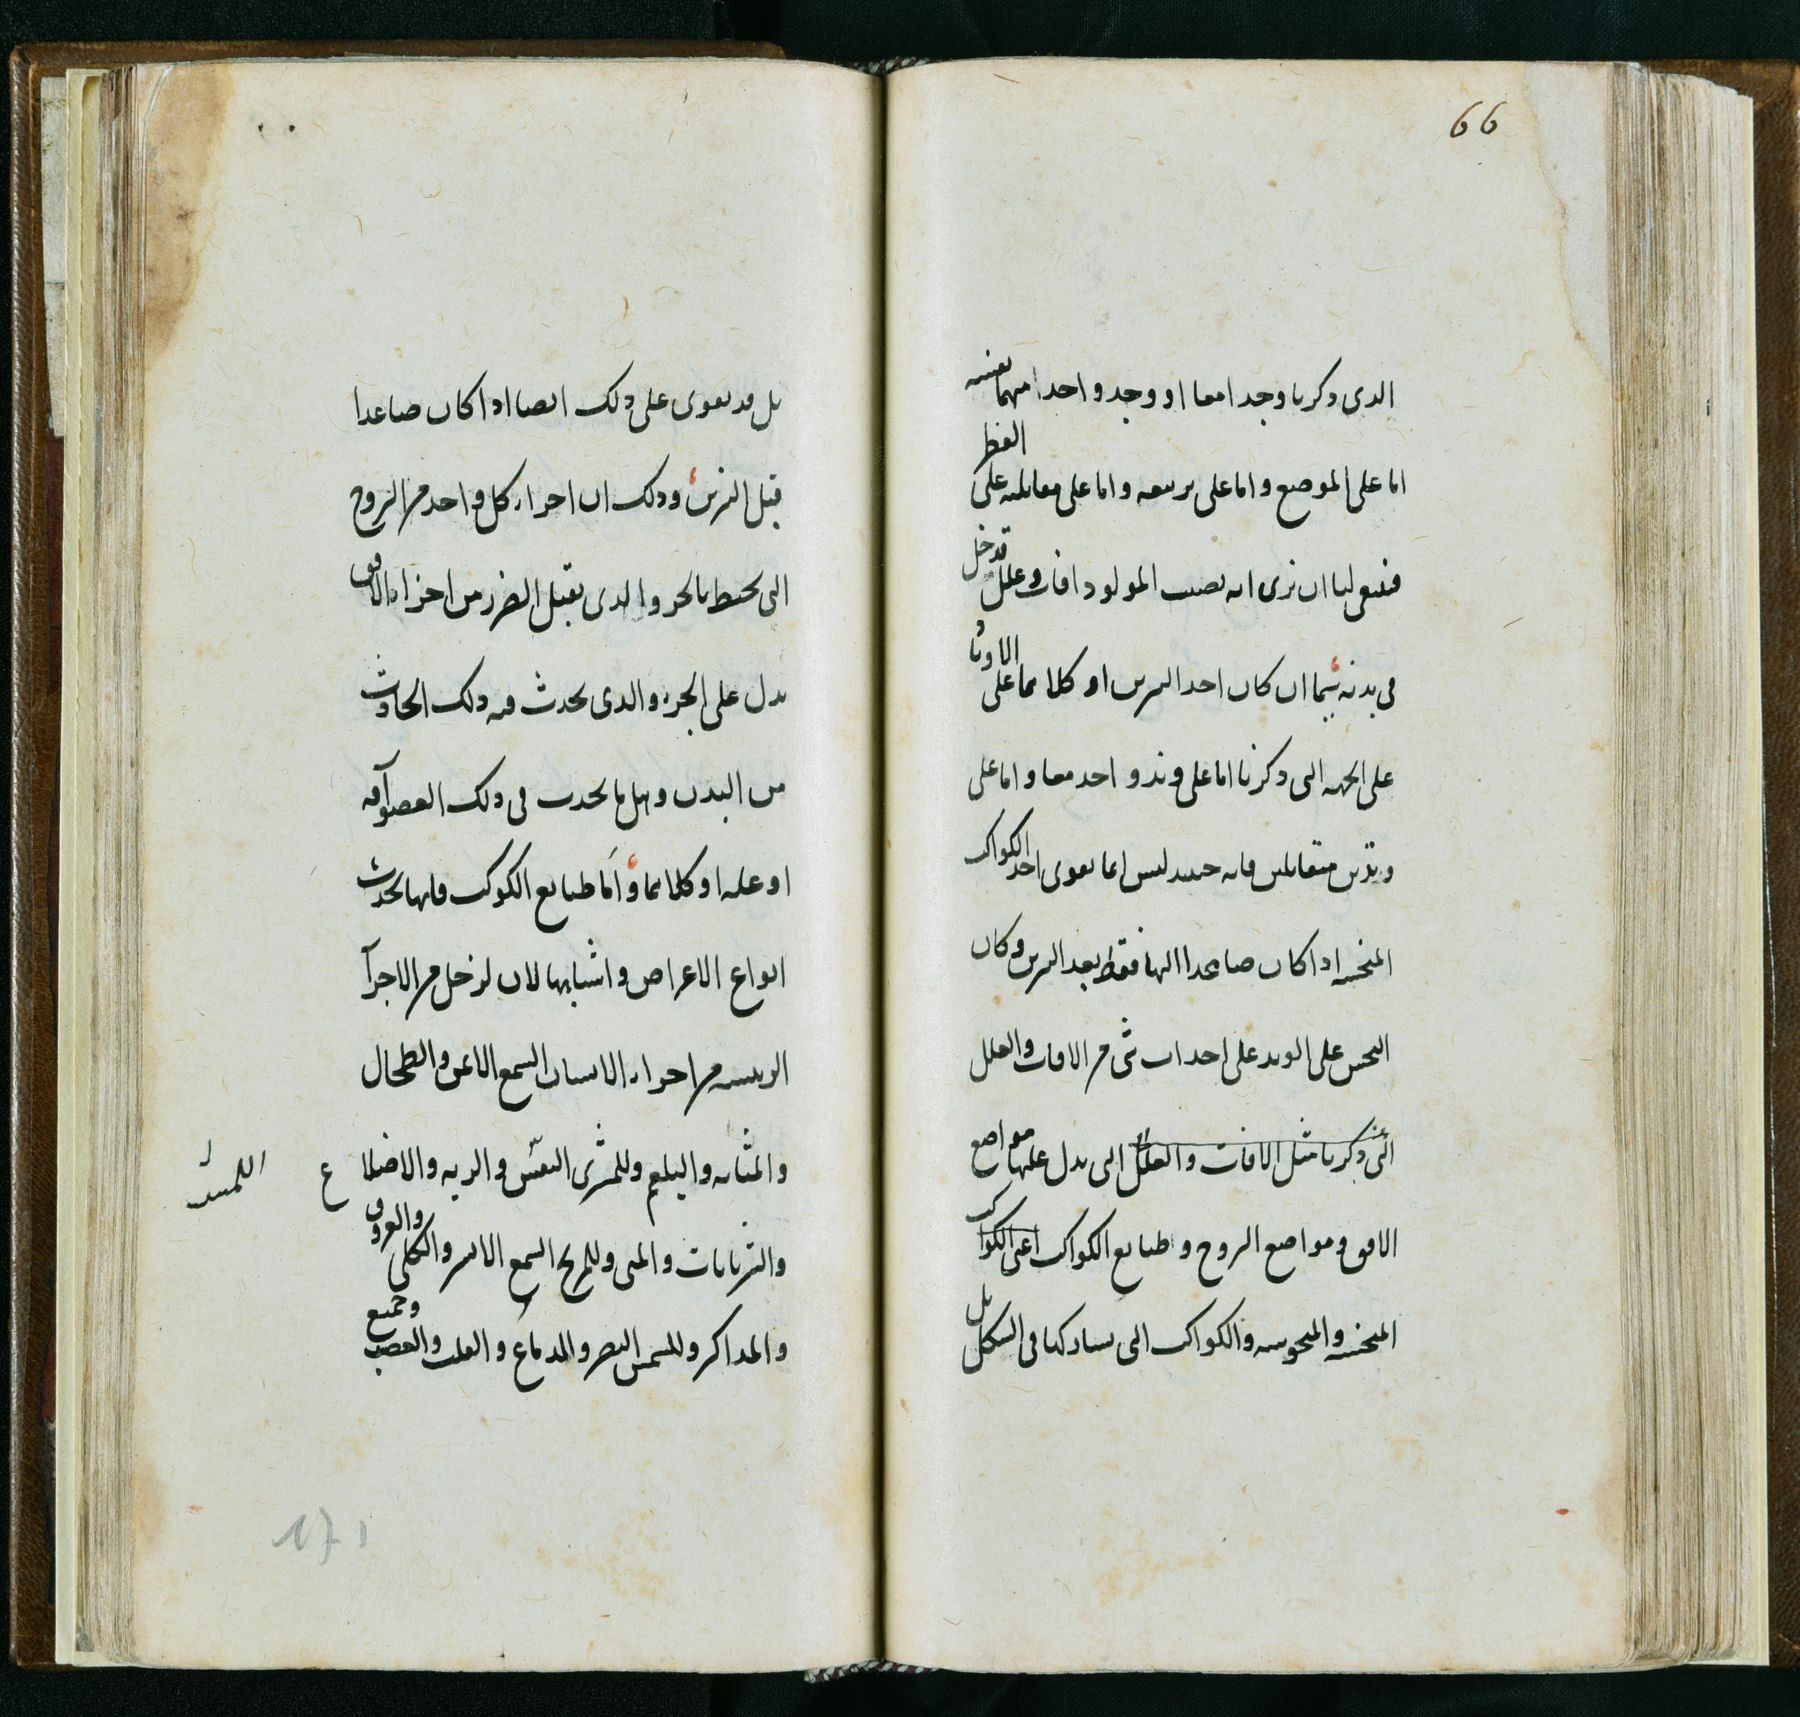 66
الذى ذكرنا وجدا معا او وجد واحدا منهما بعينه
اما على الموضع واما على تربيعه واما على مقابلته على القطر
فينبغى لنا ان نرى انه يصيب المولود افات وعلل قد خل
فى بدنه سيما ان كان احد النيرين او كلاهما على الاوتاد
على الجهه التى ذكرنا اما على وتد واحد معا واما على
وتدين متقابلين فانه حينئذ ليس انما يقوى احد الكواكب
المنحسه اذا كان صاعدا اليها فقط بعد النيرين وكان
النحس على الوتد على احداث شى من الافات والعلل
التى ذكرنا مثل الافات والعلل التى يدل عليها مواضع
الافق ومواضع البروج وطبايع الكواكب اعنى الكواكب
المنحسه والمنحوسه والكواكب التى تشاركها فى الشكل بل
بل قد يقوى على ذلك ايضا اذا كان صاعدا
قبل النيرين وذلك ان اجزاء كل واحد من البروج
التى تحيط بالجزو الذى يقبل الضرر من اجزاء الافق
يدل على الجزء والذى يحدث فيه ذلك الحادث
من البدن وهل ما يحدث فى ذلك العضو آفه
او عله او كلاهما واما طبايع الكوكب فانها تحدث
انواع الاعراض واشباهها لان لزحل من الاجزآ
الرئيسه من اجزاء الانسان السمع الايمن والطحال
والمثانه والبلغم وللمشترى النفس والريه والاضلاع
والشريانات والمنى وللمريخ السمع الايسر والكلى والعروق
والمذاكر وللشمس البصر والدماغ والقلب والعصب وجميع
171